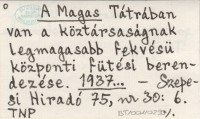 A Magas Tátrában
van a köztársaságnak
legmagasabb fekvésü
központi fütési beren-
dezése. 1937... — Szepe-
si Hiradó 75, nr 30: 6.
TNP